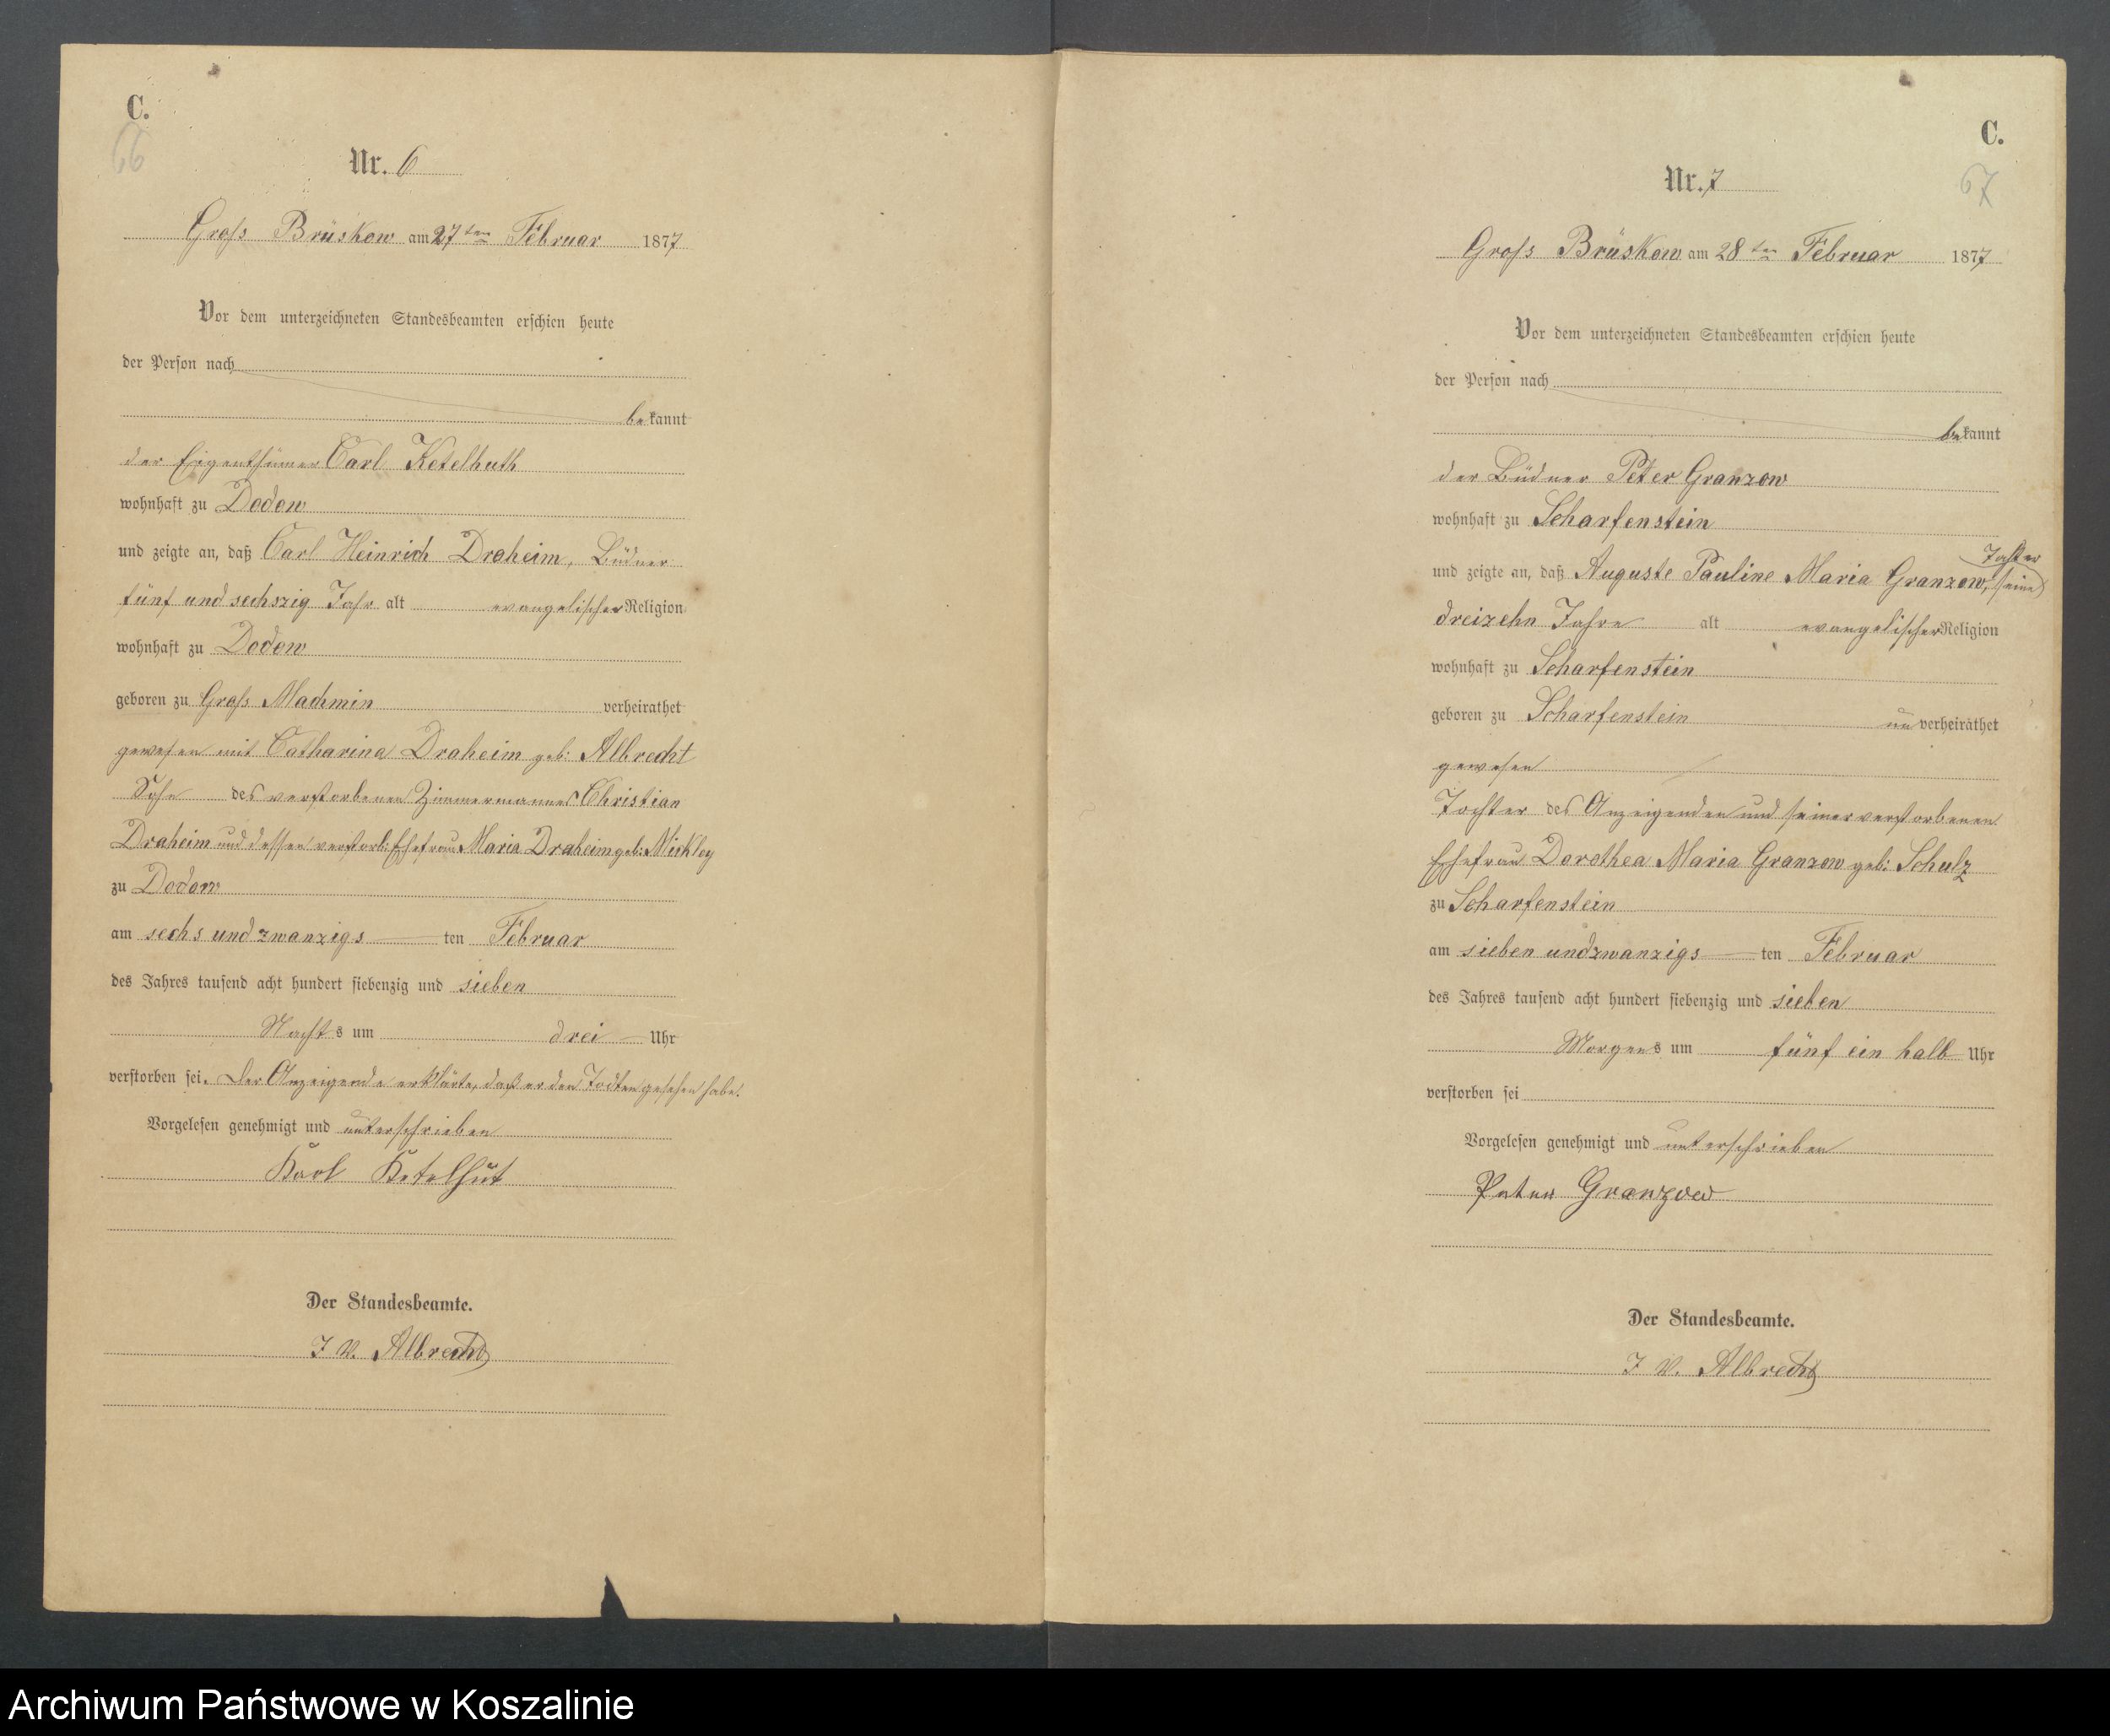 C.
66
Nr. 6
Groß Brüskow am 27ten Februar 1877
Vor dem unterzeichneten Standesbeamten erschien heute
der Person nach
bekannt
der Eigenthümer Carl Ketelhuth
wohnhaft zu Dodow
und zeigte an, daß Carl Heinrich Draheim, Büdner
fünf und sechszig Jahr alt evangelischer Religion
wohnhaft zu Dodow
geboren zu Groß Machmin verheirathet
gewesen mit Catharina Draheim geb: Albrecht
Sohn des verstorbenen Zimmermannes Christian
Draheim und dessen verstorb: Ehefrau Maria Draheim geb: Mickley
zu Dodow
am sechs und zwanzigs ten Februar
des Jahres tausend acht hundert siebenzig und sieben
Nachts um drei Uhr
verstorben sei. Der Anzeigende erklärte, daß er den Todten gesehen habe.
Vorgelesen genehmigt und unterschrieben
Karl Ketelhut
Der Standesbeamte.
J. V. Albrecht
C.
67
Nr. 7
Groß Brüskow am 28ten Februar 1877
Vor dem unterzeichneten Standesbeamten erschien heute
der Person nach
bekannt
der Büdner Peter Granzow
wohnhaft zu Scharfenstein
Tochter
und zeigte an, daß Auguste Pauline Maria Granzow, seine
dreizehn Jahre alt evangelischer Religion
wohnhaft zu Scharfenstein
geboren zu Scharfenstein unverheirathet
gewesen
Tochter des Anzeigenden und seiner verstorbenen
Ehefrau Dorothea Maria Granzow geb: Schulz
zu Scharfenstein
am sieben und zwanzigs ten Februar
des Jahres tausend acht hundert siebenzig und sieben
Morgens um fünf ein halb Uhr
verstorben sei
Vorgelesen genehmigt und unterschrieben
Peter Granzow
Der Standesbeamte.
J. V. Albrecht
Archiwum Państwowe w Koszalinie